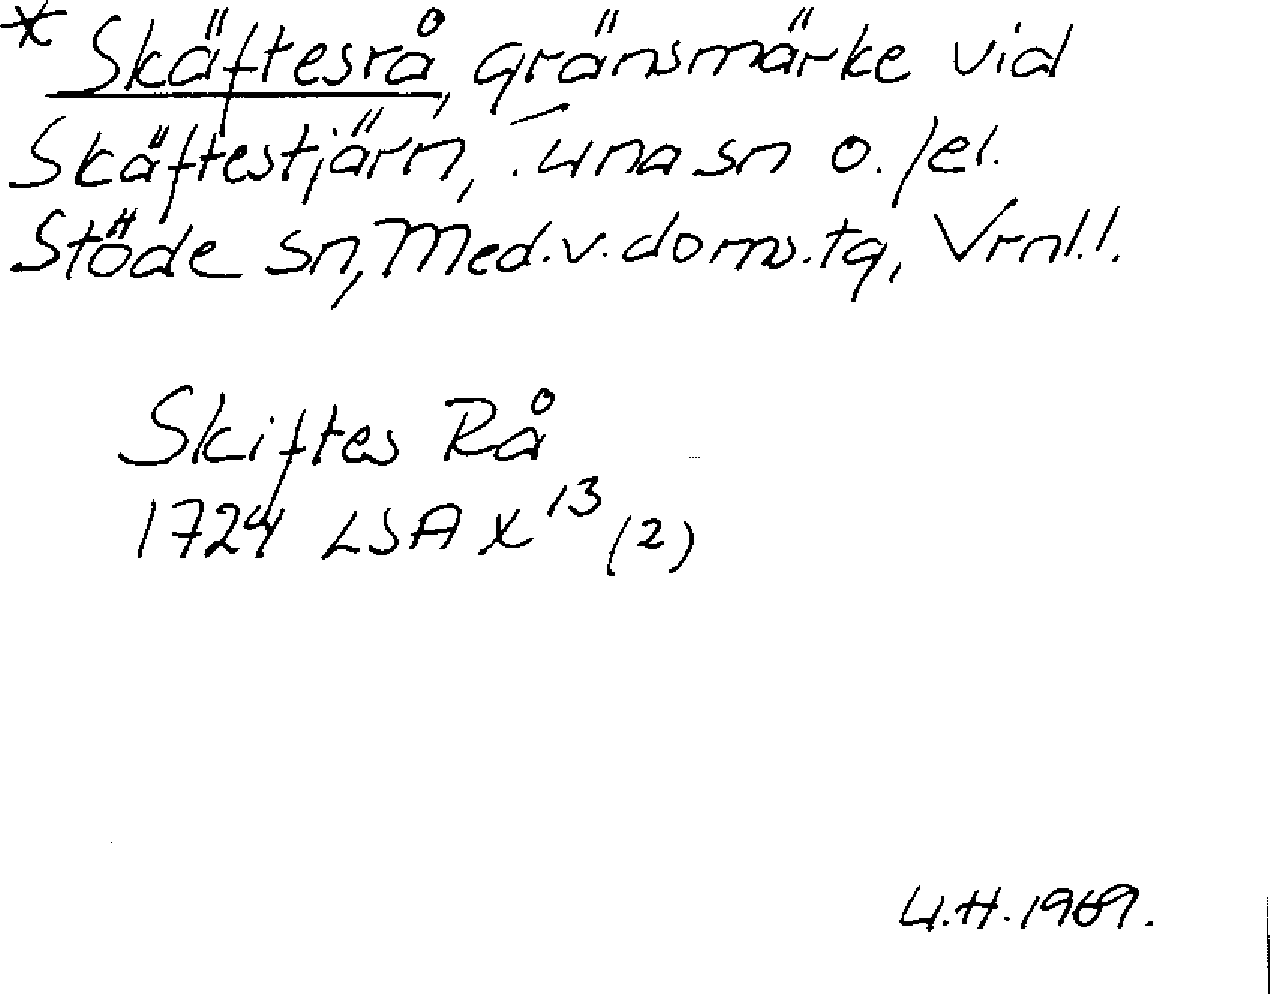 * Skäftesrå, gränsmärke vid
Skäftestjärn, Tuna sn o./el.
Stöde sn, Med.v.doms.tg, Vrnl.l.
Skiftes Rå
1724 LSA X¹³ (2)
U.H. 1969.